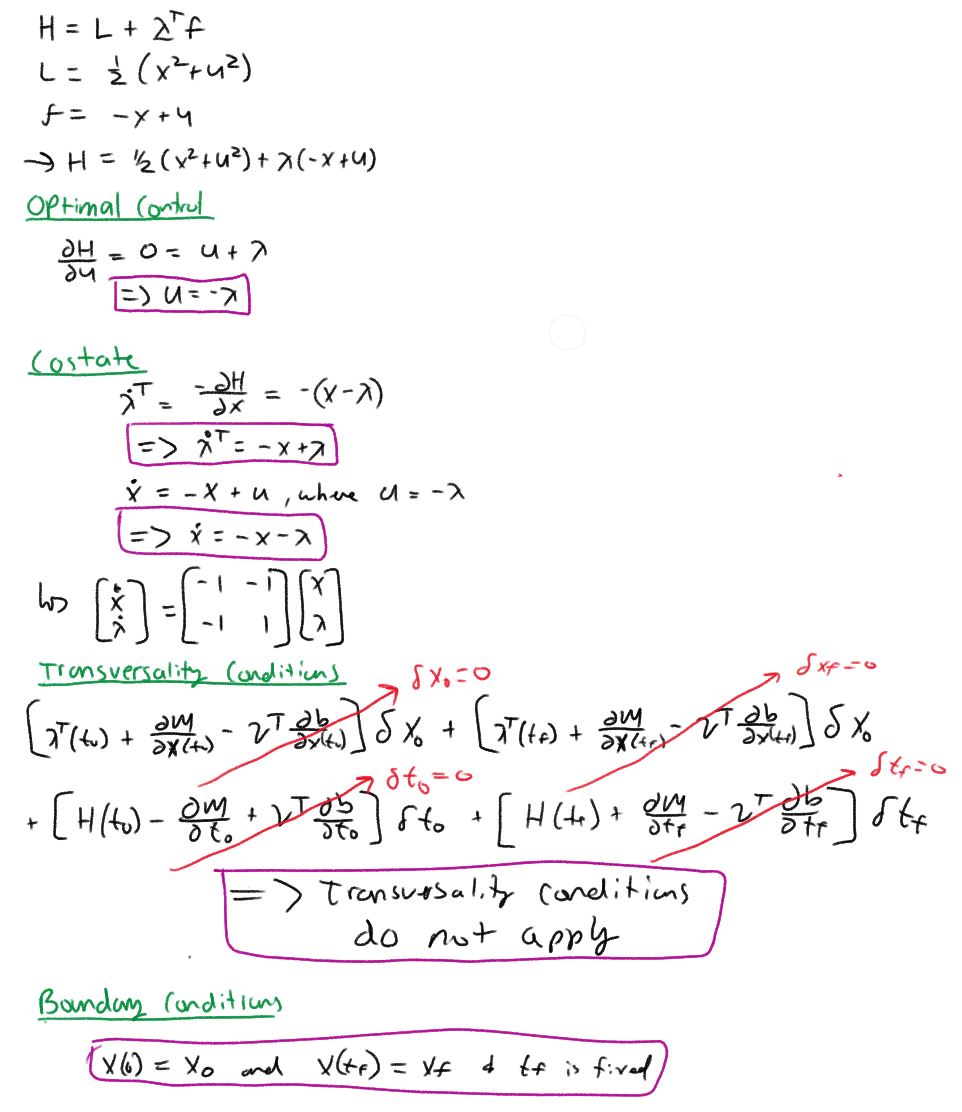 H = L + λᵀf
L = ½ (x²+u²)
f = -x+u
→ H = ½(x²+u²) + λ(-x+u)
Optimal Control
∂H/∂u = 0 = u + λ
=> u = -λ
Costate
λ̇ᵀ = -∂H/∂x = -(x-λ)
=> λ̇ᵀ = -x+λ
ẋ = -x + u , where u = -λ
=> ẋ = -x-λ
↳ [ẋ; λ̇] = [-1 -1; -1 1] [x; λ]
Transversality Conditions
δx₀=0 δxf=0
[λᵀ(t₀) + ∂M/∂x(t₀) - νᵀ ∂b/∂x(t₀)] δx₀ + [λᵀ(tf) + ∂M/∂x(tf) - νᵀ ∂b/∂x(tf)] δx₀
δt₀=0 δtf=0
+ [H(t₀) - ∂M/∂t₀ + νᵀ ∂b/∂t₀] δt₀ + [H(tf) + ∂M/∂tf - νᵀ ∂b/∂tf] δtf
=> Transversality conditions
do not apply
Boundary Conditions
x(0) = x₀ and x(tf) = xf & tf is fixed